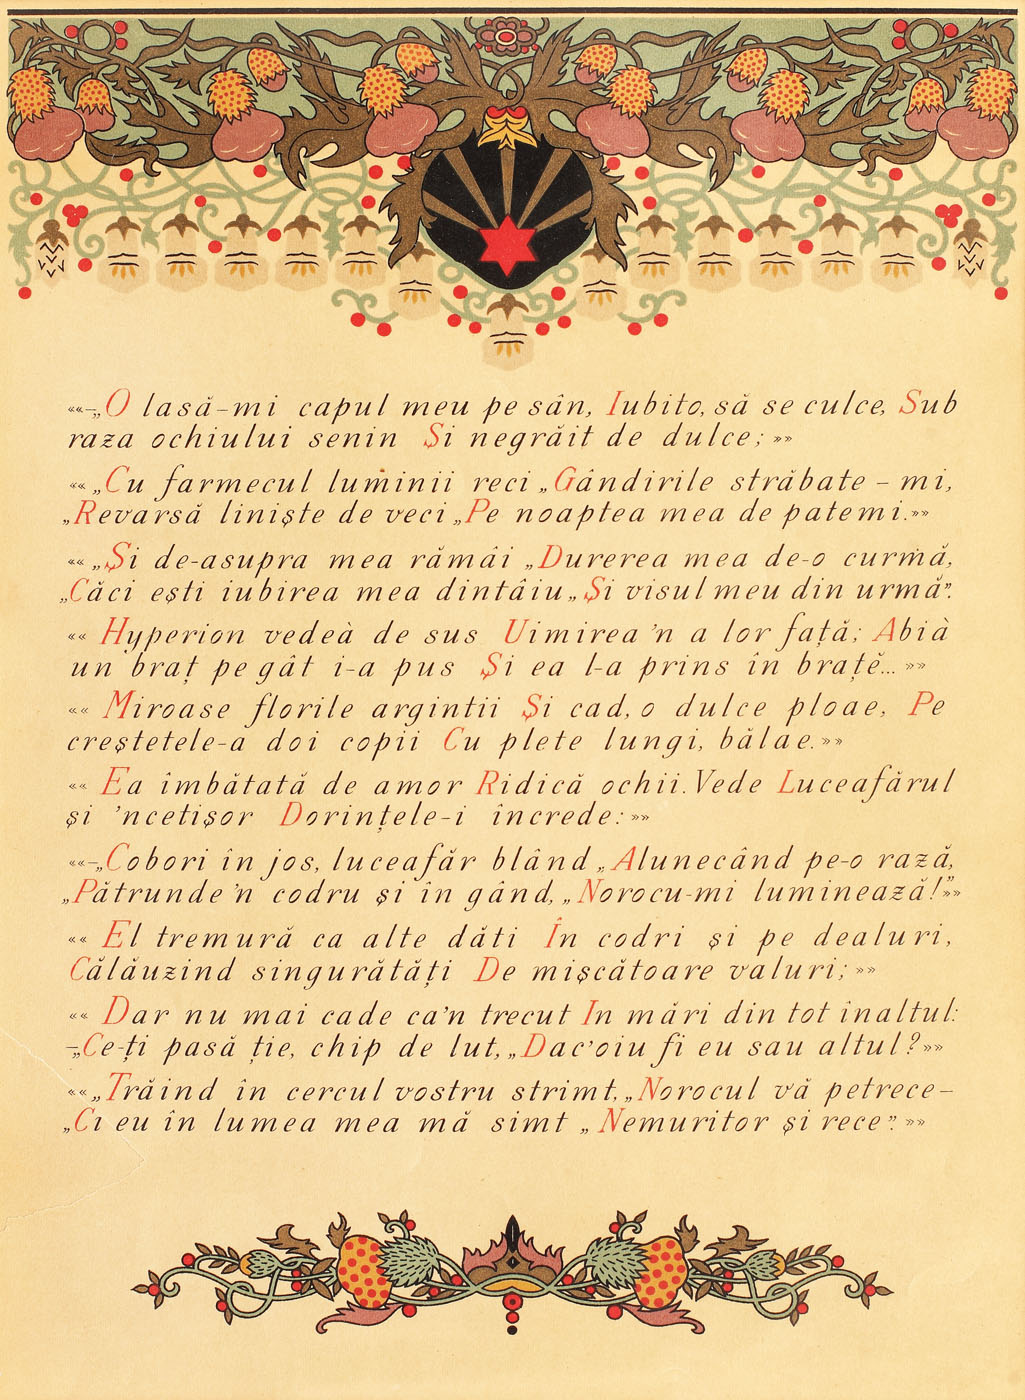 ««–„O lasă-mi capul meu pe sân, Iubito, să se culce, Sub
raza ochiului senin Și negrăit de dulce; »»
«« „Cu farmecul luminii reci „Gândirile străbate – mi,
„Revarsă liniște de veci „Pe noaptea mea de patemi.»»
«« „Și de-asupra mea rămâi „Durerea mea de-o curmă,
„Căci ești iubirea mea dintâiu „Și visul meu din urmă”.
«« Hyperion vedeà de sus Uimirea ’n a lor față; Abià
un braț pe gât i-a pus Și ea l-a prins în brațĕ... »»
«« Miroase florile argintii Și cad, o dulce ploae, Pe
creștetele-a doi copii Cu plete lungi, bălae. »»
«« Ea îmbătată de amor Ridică ochii. Vede Luceafărul
și ’ncetișor Dorințele-i încrede: »»
««–„Cobori în jos, luceafăr blând „Alunecând pe-o rază,
„Pătrunde ’n codru și în gând, „Norocu-mi luminează!”»»
«« El tremură ca alte dăti În codri și pe dealuri,
Călăuzind singurătăți De mișcătoare valuri; »»
«« Dar nu mai cade ca’n trecut In mări din tot înaltul:
–„Ce-ți pasă ție, chip de lut, „Dac’oiu fi eu sau altul? »»
«« „Trăind în cercul vostru strimt, „Norocul vă petrece–
„Ci eu în lumea mea mă simt „Nemuritor și rece”. »»